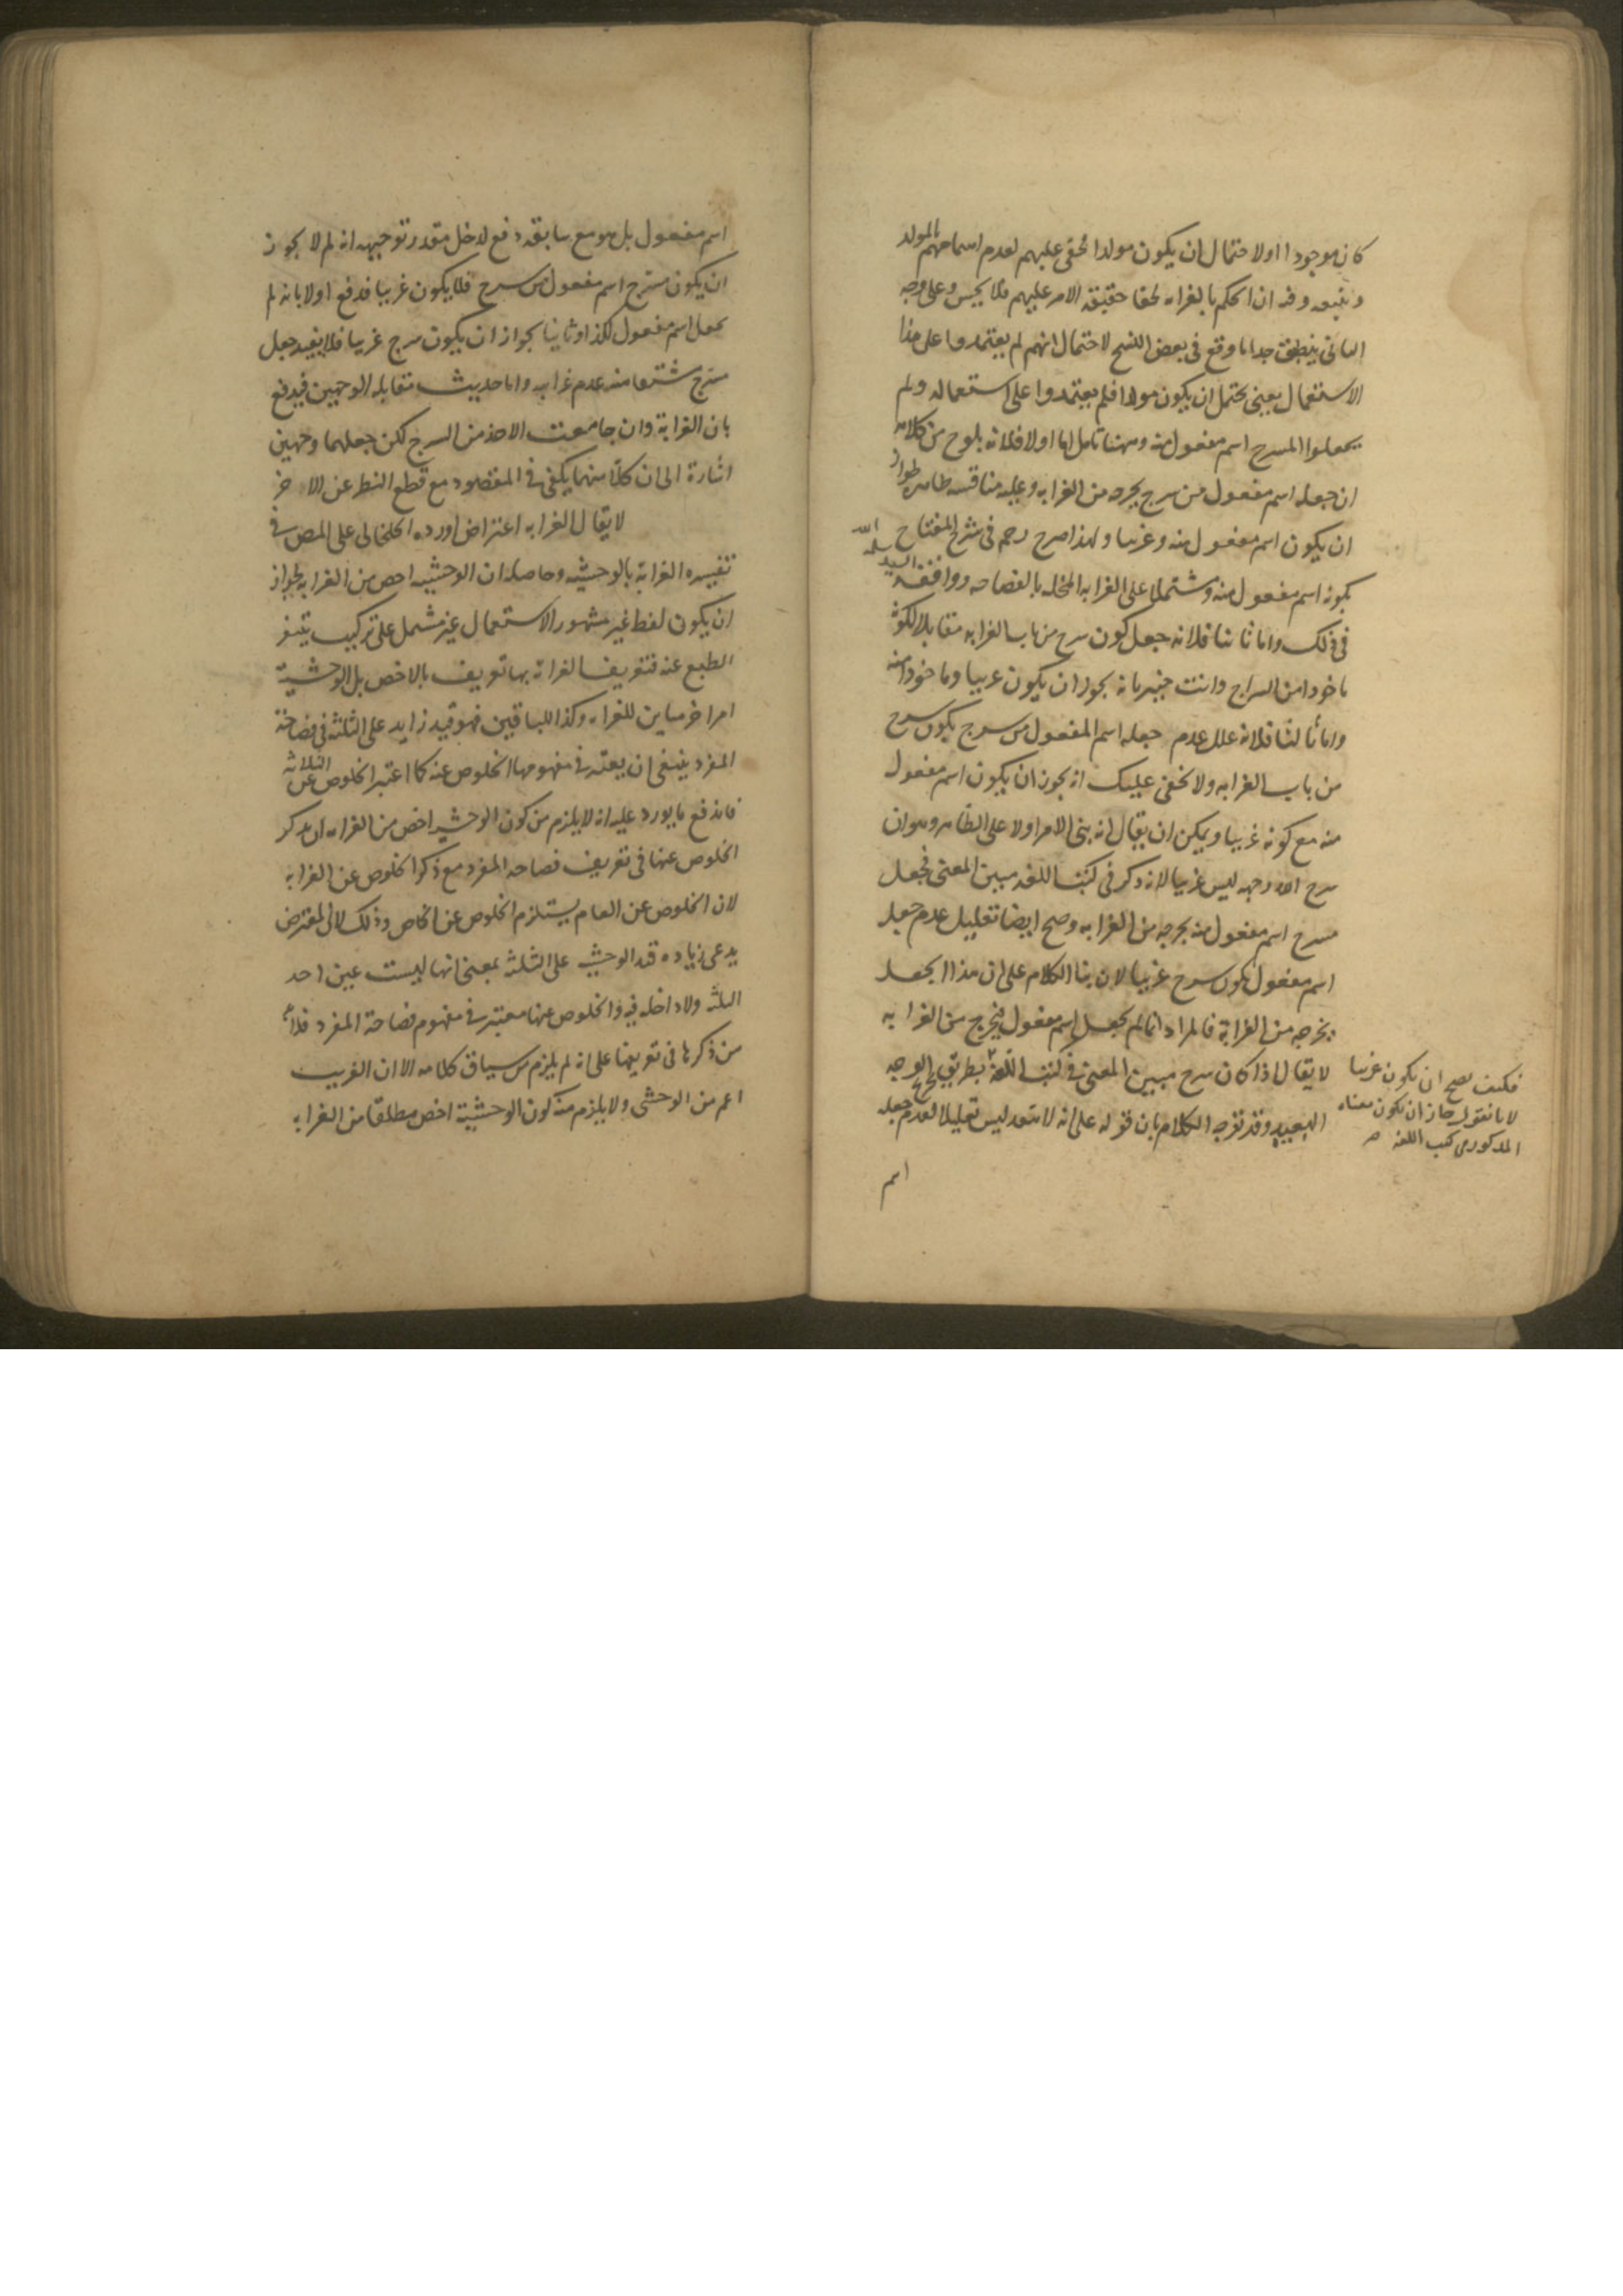 كان موجودا اولا حتمال ان يكون مولدا خفى عليهم لعدم اسماعهم المولد
وفيه ان الحكم بالغرابه لخفا حقيقة الامر عليهم مما لا يحسن وعلى وجه
الثانى ينطبق جدا ما وقع فى بعض النسخ لاحتمال انهم لم يعتمدوا على هذا
الاستعمال يعنى يحتمل ان يكون مولدا فلم يعتمدوا على استعماله ولم
يجعلوا المسرج اسم مفعول منه وههنا تامل اما اولا فلانه يلوح من كلامه
ان جعله اسم مفعول من سرج يخرجه من الغرابه وعليه مناقشه ظاهره لجواز
ان يكون اسم مفعول منه وغريبا ولهذا صرح رحمه فى شرح المفتاح
بكونه اسم مفعول منه ومشتملا على الغرابه المخله بالفصاحه ووافقه السيد سلمه الله
فى ذلك واما ثانيا فلانه جعل كون سرج من باب الغرابه مقابلا لكونه
ماخوذا من السراج وانت خبير بانه يجوز ان يكون غريبا وماخوذا منه
واما ثالثا فلانه علل عدم جعله اسم المفعول من سرج بكون سرج
من باب الغرابه ولا يخفى عليك انه يجوز ان يكون اسم مفعول
منه مع كونه غريبا ويمكن ان يقال انه بنى الامر اولا على الظاهر وهو ان
سرج الله وجهه ليس غريبا لانه ذكر فى كتب اللغه مبين المعنى فجعل
مسرج اسم مفعول منه يخرجه من الغرابه وصح ايضا تعليل عدم جعله
اسم مفعول بكون سرج غريبا لان بنا الكلام على ان هذا الجعل
يخرجه من الغرابة فالمراد انما لم يجعل اسم مفعول فيخرج من الغرابه
لا يقال اذا كان سرج مبين المعنى فى كتب اللغة بطريق الوجه
البعيد وقد توجه الكلام بان قوله على انه لا يبعد ليس تعليلا لعدم جعله
فكيف يصح ان يكون غريبا
لانا نقول جاز ان يكون معناه
المذكور فى كتب اللغه
اسم
اسم مفعول بل هو مع سابقه دفع لدخل مقدر توجيهه انه لم لا يجوز
ان يكون مسرج اسم مفعول من سرج فلا يكون غريبا فدفع اولا بانه لم
يجعل اسم مفعول لكذا وثانيا بجواز ان يكون سرج غريبا فلا يفيد جعل
مسرج مشتقا منه عدم غرابه واما حديث مقابله الوجهين فيدفع
بان الغرابة وان جامعت الاخذ من السرج لكن جعلهما وجهين
اشارة الى ان كلا منهما يكفى فى المقصود مع قطع النظر عن الاخر
لا يقال الغرابه اعتراض اورده الخلخالى على المص فى
تفسيره الغرابة بالوحشية وحاصله ان الوحشيه اخص من الغرابه لجواز
ان يكون لفظ غير مشهور الاستعمال غير مشتمل على تركيب يتنفر
الطبع عنه فتعريف الغرابة بها تعريف بالاخص بل الوحشية
امر اخر مباين للغرابه وكذا للباقيين فهو قيد زايد على الثلثة فى فصاحة
المفرد ينبغى ان يعتبر فى مفهومها الخلوص عنه كما اعتبر الخلوص عن الثلاثه
فاندفع ما يورد عليه انه لا يلزم من كون الوحشيه اخص من الغرابه ان يذكر
الخلوص عنها فى تعريف فصاحه المفرد مع ذكر الخلوص عن الغرابه
لان الخلوص عن العام يستلزم الخلوص عن الخاص وذلك لان المعترض
يدعى زياده قيد الوحشيه على الثلثه بمعنى انها ليست عين احد
الثلثه ولا داخله فيه والخلوص عنها معتبر فى مفهوم فصاحة المفرد فلا بد
من ذكرها فى تعريفها على انه لم يلزم من سياق كلامه الا ان الغريب
اعم من الوحشى ولا يلزم منه كون الوحشية اخص مطلقا من الغرابه